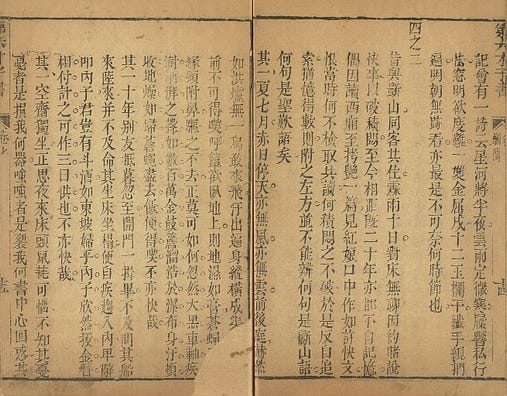 第六才子書
記曾有一詩云星河將半夜雲雨定微寒屧響私行
怯窗明欲度難一雙金屈戌十二玉欄干纖手親捫
遍明朝無跡看亦最是不可奈何時節也
四之二
昔與斲山同客共住霖雨十日對床無聊因約賭說
快事以破積悶至今相距既二十年亦都不自記憶
偶因讀西廂至拷艷一篇見紅娘口中作如許快文
恨當時何不檢取共讀何積悶之不破於是反自追
索猶憶得數則附之左方並不能辨何句是斲山語
何句是聖歎語矣
其一夏七月赤日停天亦無風亦無雲前後庭赫然
如洪爐無一鳥敢來飛汗出遍身縱橫成渠
前不可得喫呼簟欲臥地上則地濕如膏蒼蠅
緣頸附鼻驅之不去正莫可如何忽然大黑車軸疾
澍澎湃之聲如數百萬金鼓簷溜浩於瀑布身汗頓
收地燥如掃蒼蠅盡去飯便得喫不亦快哉
其一十年別友抵暮忽至開門一揖畢不及問其船
來陸來並不及命其坐床坐榻便自疾趨入內卑辭
叩內子君豈有斗酒如東坡婦乎內子欣然拔金簪
相付計之可作三日供也不亦快哉
其一空齋獨坐正思夜來床頭鼠耗可惱不知其戛
戛者是損我何器嗤嗤者是裂我何書中心回惑其